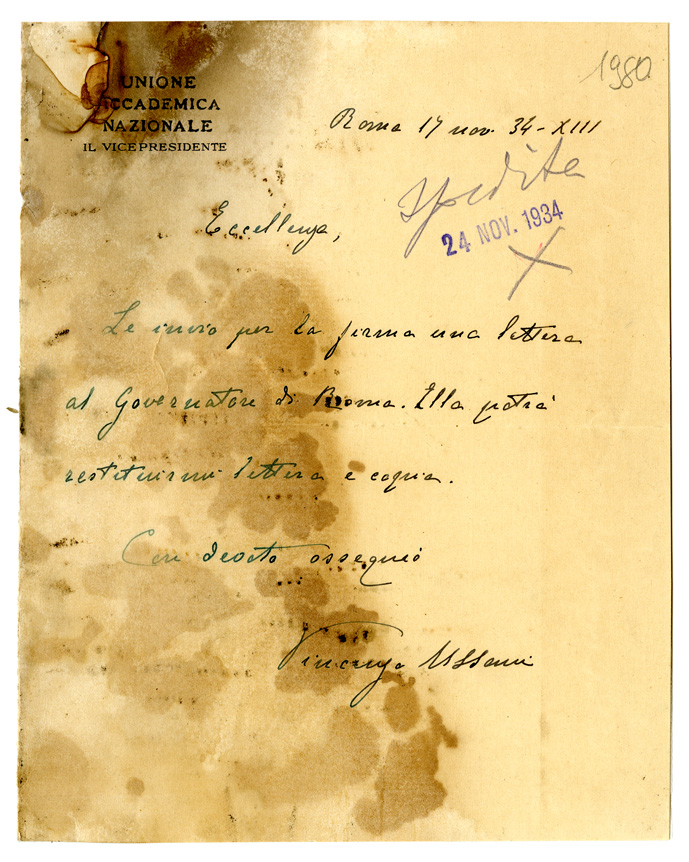 1980
UNIONE
ACCADEMICA
NAZIONALE
IL VICEPRESIDENTE
Roma 17 nov. 34 - XIII
Spedita
24 NOV. 1934
Eccellenza,
Le invio per la firma una lettera
al Governatore di Roma. Ella potrà
restituirmi lettera e copia.
Con devoto ossequio
Vincenzo Ussani